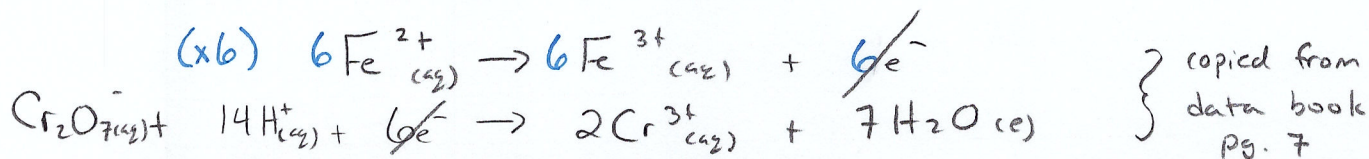 (x6) 6Fe²⁺(aq) → 6Fe³⁺(aq) + 6e⁻
Cr₂O₇⁻(aq) + 14H⁺(aq) + 6e⁻ → 2Cr³⁺(aq) + 7H₂O(l)
} copied from
data book
pg. 7